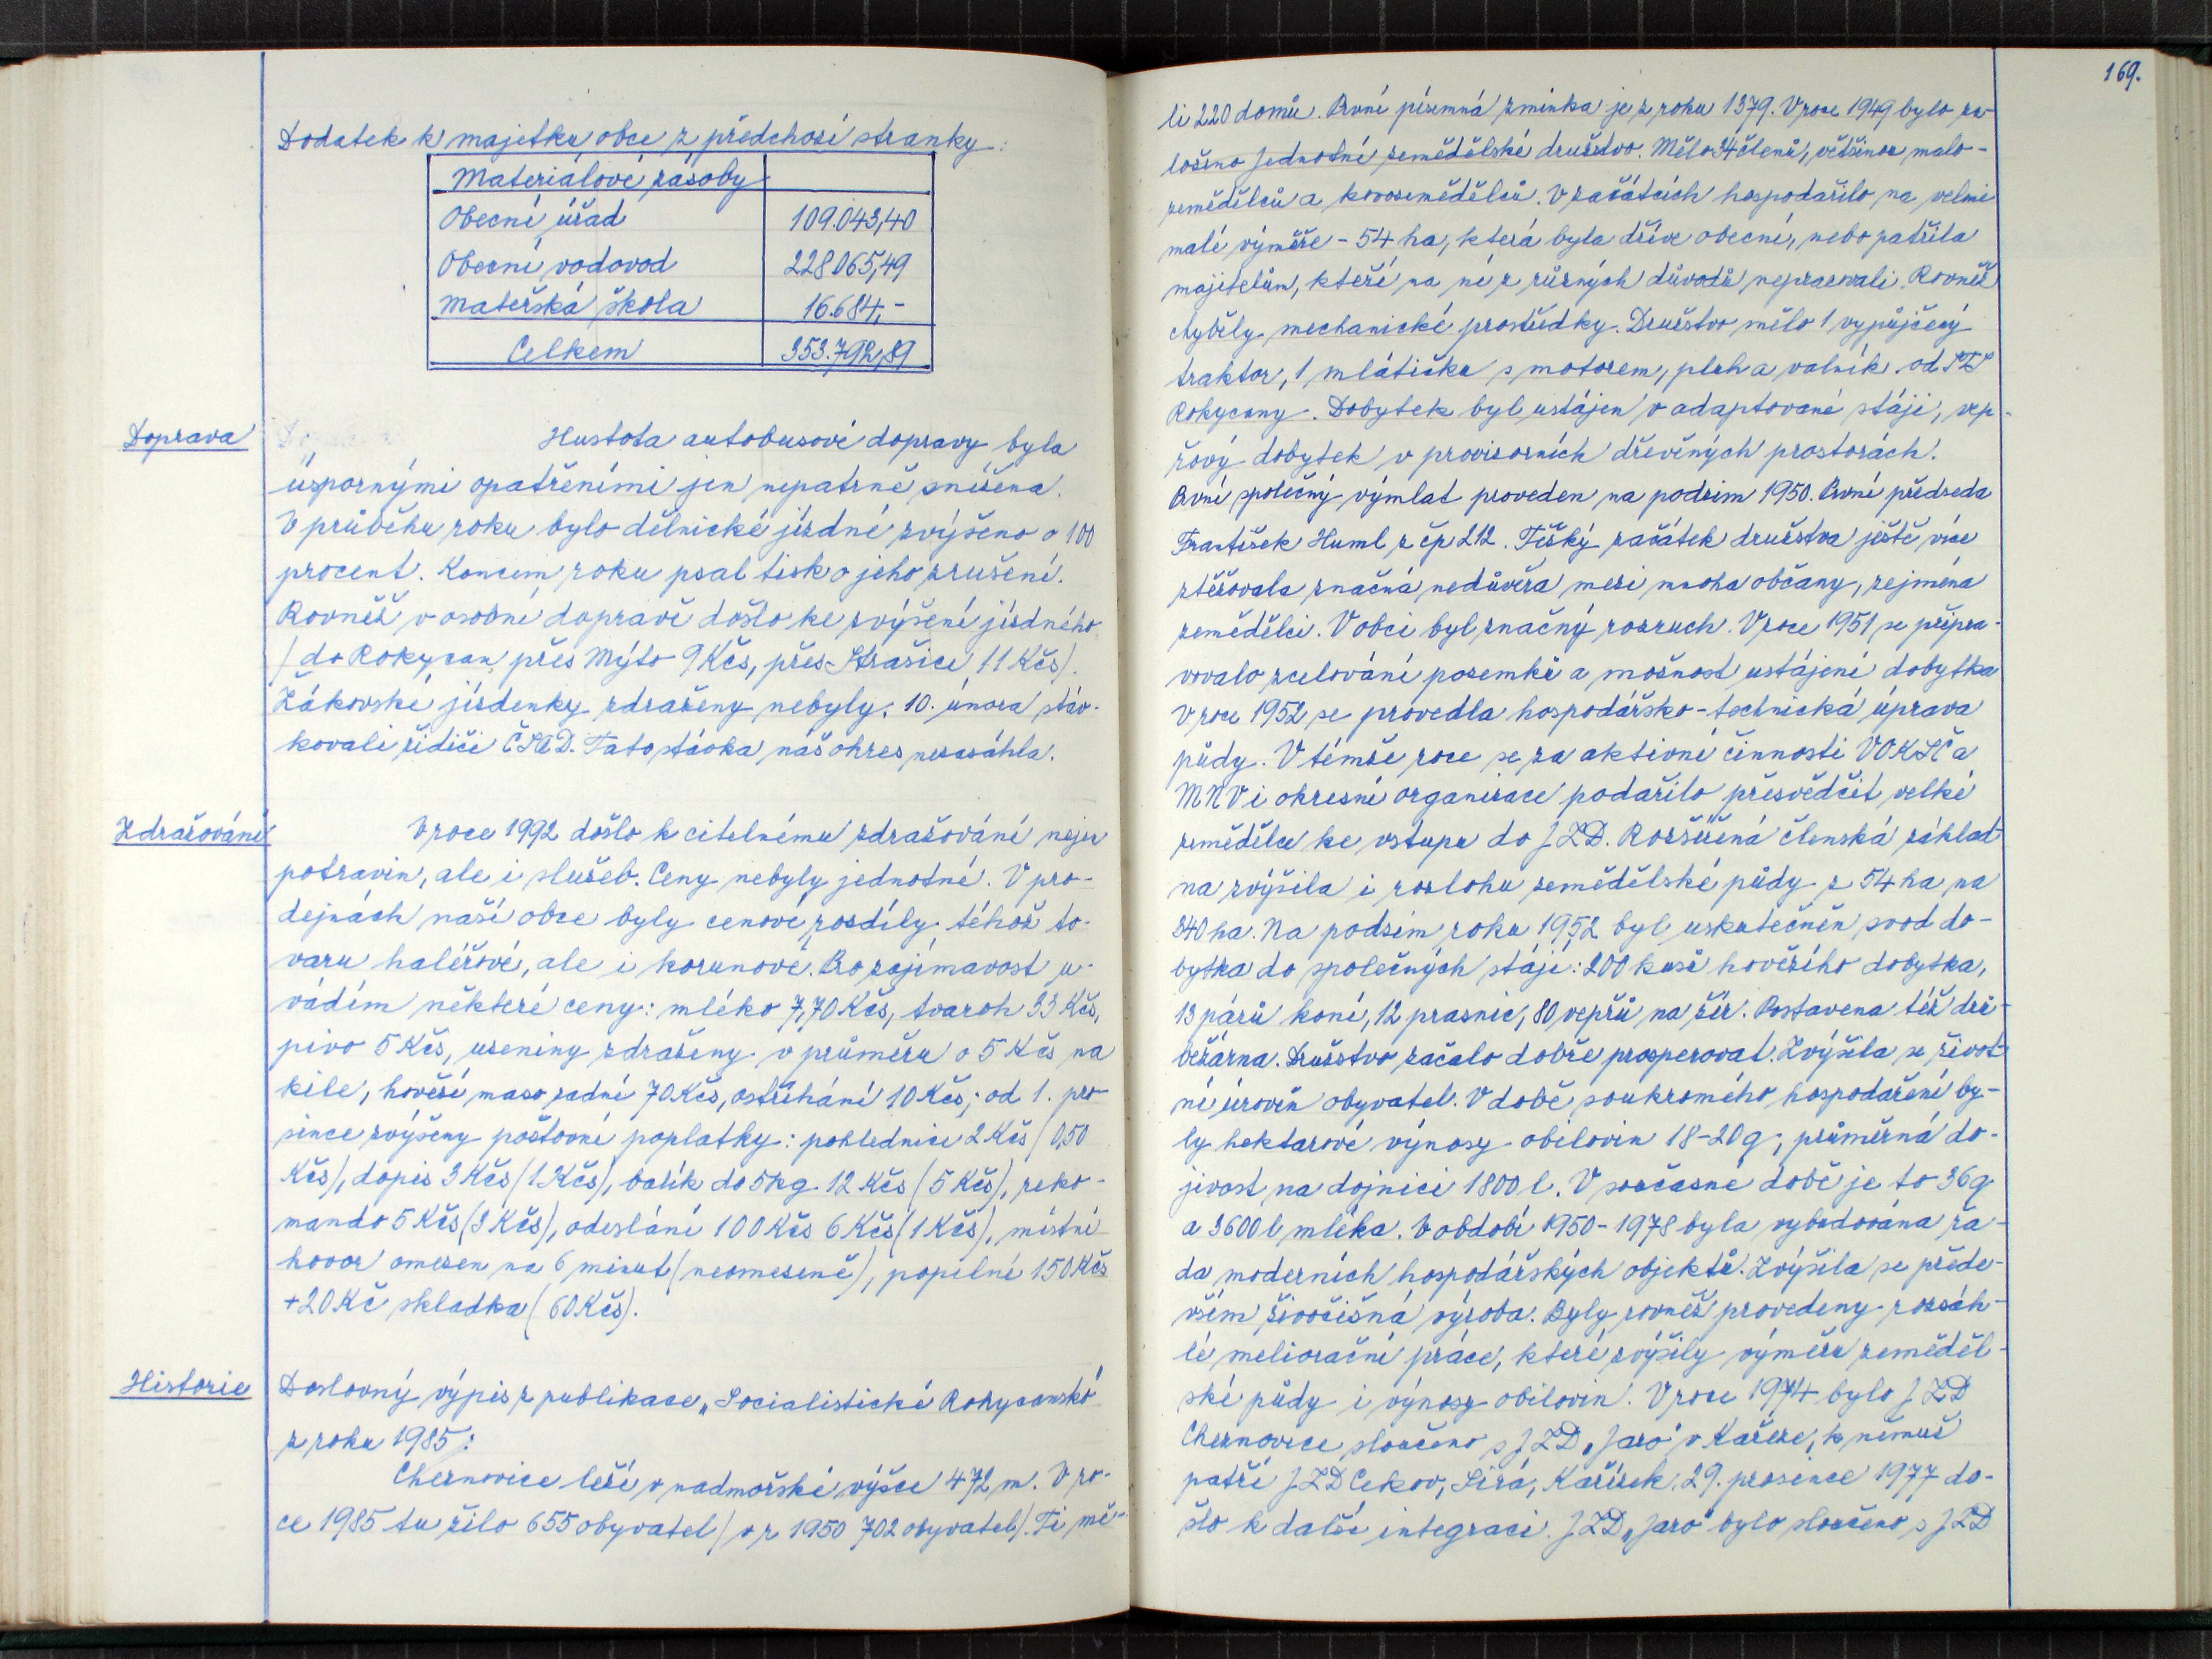 Dodatek k majetku obce z předchozí stranky:
Materiálové zásoby
Obecní úřad 109.043,40
Obecní vodovod 228065,49
Mateřská škola 16.684,-
Celkem 353.792,89
Doprava
Hustota autobusové dopravy byla
úspornými opatřeními jen nepatrně snížena.
V průběhu roku bylo dělnické jízdné zvýšeno o 100
procent. Koncem roku psal tisk o jeho zrušení.
Rovněž v osobní dopravě došlo ke zvýšení jízdného
/do Rokycan přes Mýto 9 Kčs, přes Strašice 11 Kčs/.
Žákovské jízdenky zdraženy nebyly. 10. února stáv-
kovali řidiči ČSAD. Tato stávka náš okres nezasáhla.
Zdražování
V roce 1992 došlo k citelnému zdražování nejen
potravin, ale i služeb. Ceny nebyly jednotné. V pro-
dejnách naší obce byly cenové rozdíly téhož to-
varu haléřové, ale i korunové. Pro zajímavost u-
vádím některé ceny: mléko 7,70 Kčs, tvaroh 33 Kčs,
pivo 5 Kčs, uzeniny zdraženy v průměru o 5 Kčs na
kile, hovězí maso zadní 70 Kčs, ostříhání 10 Kčs; od 1. pro-
since zvýšeny poštovní poplatky: pohlednice 2 Kčs /0,50
Kčs/, dopis 3 Kčs /1 Kčs/, balík do 5 kg 12 Kčs /5 Kčs/, reko-
mando 5 Kčs /3 Kčs/, odeslání 100 Kčs 6 Kčs /1 Kčs/, místní
hovor omezen na 6 minut /neomezeně/, popelné 150 Kčs
+20 Kč skladka /60 Kčs/.
Historie
Doslovný výpis z publikace „Socialistické Rokycansko"
z roku 1985:
Cheznovice leží v nadmořské výšce 472 m. V ro-
ce 1985 tu žilo 655 obyvatel /v r 1950 702 obyvatel/. Ti mě-
169.
li 220 domů. První písemná zmínka je z roku 1379. V roce 1949 bylo za-
loženo Jednotné zemědělské družstvo. Mělo 34 členů, většinou malo-
zemědělců a kovozemědělců. V začátcích hospodařilo na velmi
malé výměře - 54 ha, která byla dříve obecní, nebo patřila
majitelům, kteří na ní z různých důvodů nepracovali. Rovněž
chyběly mechanické prostředky. Družstvo mělo 1 vypůjčený
traktor, 1 mlátičku s motorem, pluh a valník od STS
Rokycany. Dobytek byl ustájen v adaptované stáji, vep-
řový dobytek v provizorních dřevěných prostorách.
První společný výmlat proveden na podzim 1950. První předseda
František Huml z čp 212. Těžký začátek družstva ještě více
ztěžovala značná nedůvěra mezi mnoha občany, zejména
zemědělci. V obci byl značný rozruch. V roce 1951 se připra-
vovalo scelování pozemků a možnost ustájení dobytka
V roce 1952 se provedla hospodářsko-technická úprava
půdy. V témže roce se za aktivní činnosti VO KSČ a
MNV i okresní organizace podařilo přesvědčit velké
zemědělce ke vstupu do JZD. Rozšířená členská základ-
na zvýšila i rozlohu zemědělské půdy z 54 ha na
340 ha. Na podzim roku 1952 byl uskutečněn svod do-
bytka do společných stájí: 200 kusů hovězího dobytka,
13 párů koní, 12 prasnic, 80 vepřů na žír. Postavena též drů-
bežárna. Družstvo začalo dobře prosperovat. Zvýšila se život-
ní úroveň obyvatel. V době soukromého hospodaření by-
ly hektarové výnosy obilovin 18-20 q, průměrná do-
jivost na dojnici 1800 l. V současné době je to 36 q
a 3600 l mléka. V období 1950-1978 byla vybudována řa-
da moderních hospodářských objektů. Zvýšila se přede-
vším živočišná výroba. Byly rovněž provedeny rozsáh-
lé meliorační práce, které zvýšily výměru zeměděl-
ské půdy i výnosy obilovin. V roce 1974 bylo JZD
Cheznovice sloučeno s JZD „Jaro" v Kařeze, k němuž
patří JZD Cekov, Sirá, Kařízek. 29. prosince 1977 do-
šlo k další integraci. JZD „Jaro" bylo sloučeno s JZD